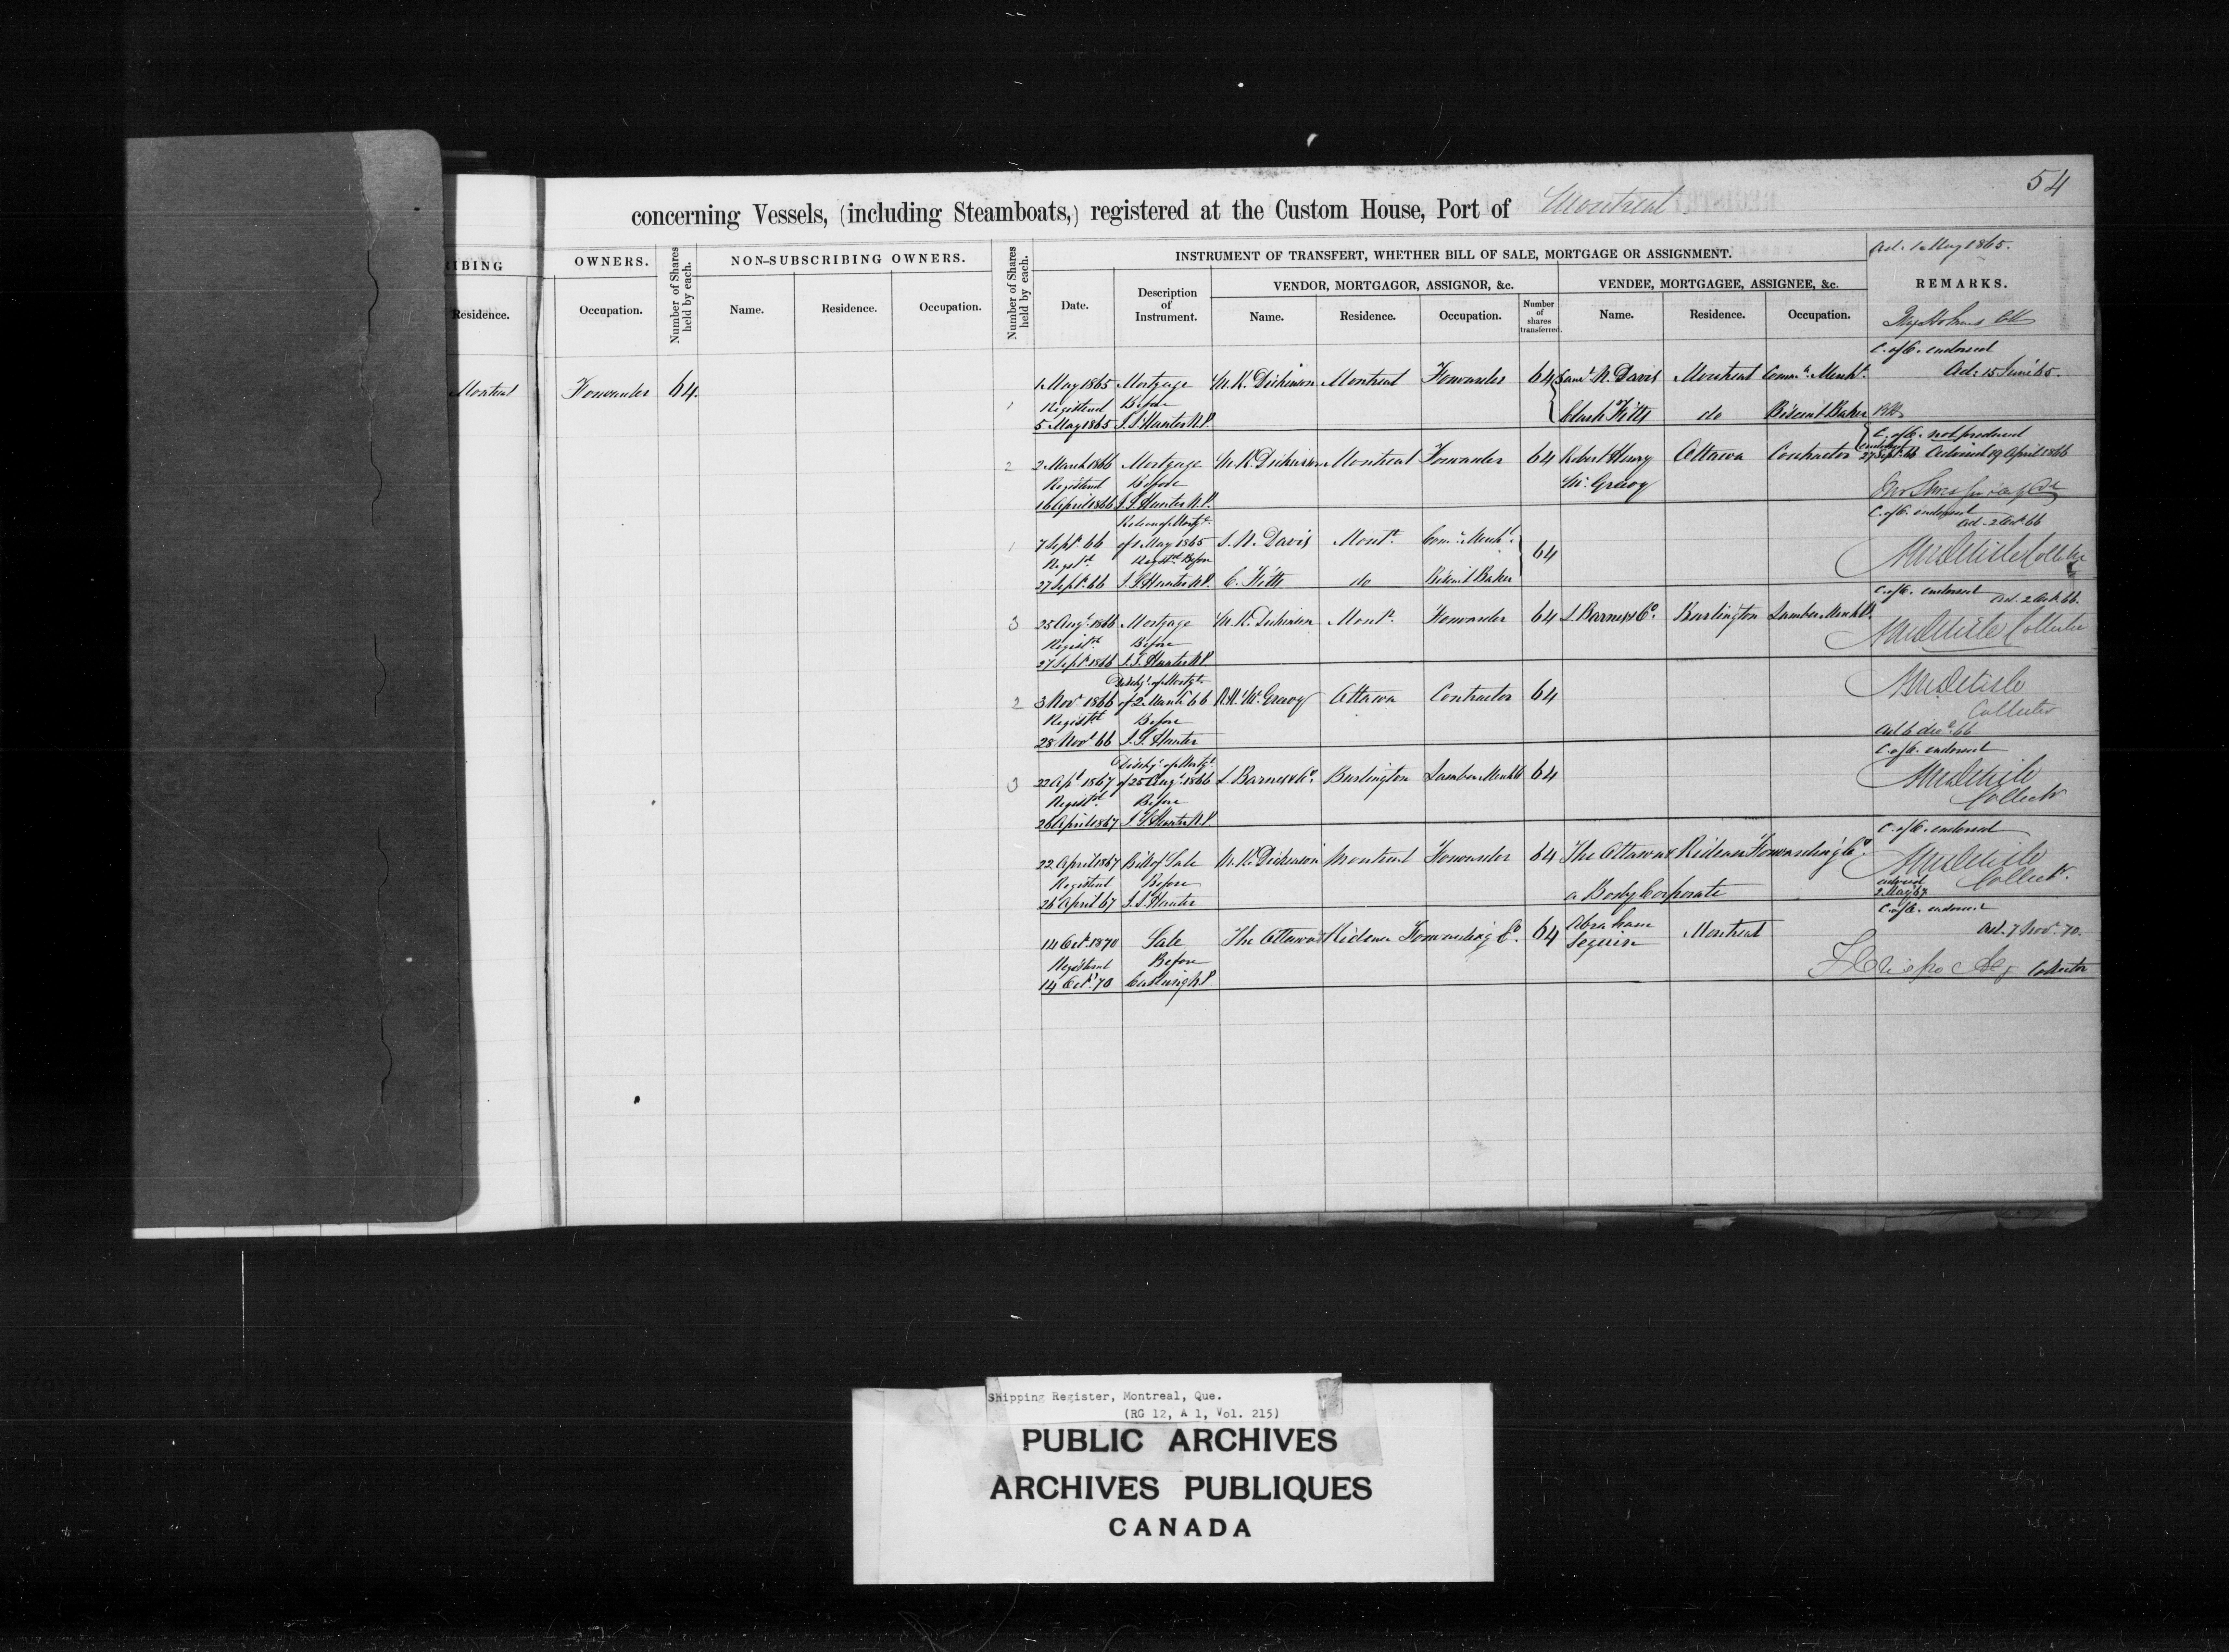 54
concerning Vessels, (including Steamboats,) registered at the Custom House, Port of Montreal
IBING
OWNERS.
Number of Shares held by each.
NON-SUBSCRIBING OWNERS.
Number of Shares held by each.
INSTRUMENT OF TRANSFERT, WHETHER BILL OF SALE, MORTGAGE OR ASSIGNMENT.
Ad: 1 May 1865.
REMARKS.
Residence.
Occupation.
Name.
Residence.
Occupation.
Date.
Description of Instrument.
VENDOR, MORTGAGOR, ASSIGNOR, &c.
VENDEE, MORTGAGEE, ASSIGNEE, &c.
Name.
Residence.
Occupation.
Number of shares transferred.
Name.
Residence.
Occupation.
Montreal Forwarder 64.
C. of C. endorsed
1 May 1865 Mortgage M. K. Dickinson Montreal Forwarder 64 Saml. N. Davis Montreal Commn. Mercht. Ad: 15 June 65.
1 Registered Before
5 May 1865 J. S. Hunter N.P. Clark Fitts do Biscuit Baker
C. of C. not produced
2 2 March 1866 Mortgage M. K. Dickinson Montreal Forwarder 64 Robert Henry Ottawa Contractor endorsed 27 Sept. 66 Advised 19 April 1866
Registered Before Mc. Greevy
16 April 1866 J. S. Hunter N.P.
C. of C. endorsed
Release of Mortge. Ad. 2 Oct. 66
1 7 Sept. 66 of 1 May 1865 S. N. Davis Mont. Com. Mercht. 64
Regst. Regstd. Before
27 Sept. 66 J. S. Hunter N.P. C. Fitts do Biscuit Baker
C. of C. endorsed Ad. 2 Oct. 66.
3 25 Augt. 1866 Mortgage M. K. Dickinson Mont. Forwarder 64 L. Barnes & Co. Burlington Lumber Merchts.
Registd. Before Collector
27 Sept. 1866 J. S. Hunter N.P.
Dischge. of Mortge.
2 3 Nov. 1866 of 2 March 66 R. H. Mc. Greevy Ottawa Contractor 64
Registd. Before Collector
28 Nov. 66 J. S. Hunter Ad 6 dec. 66
C. of C. endorsed
Dischge. of Mortge.
3 22 Apl. 1867 of 25 Augt. 1866 L. Barnes & Co. Burlington Lumber Merchts 64
Registd. Before
26 April 1867 J. S. Hunter N.P.
C. of C. endorsed
22 April 1867 Bill of Sale M. K. Dickinson Montreal Forwarder 64 The Ottawa & Rideau Forwarding Co.
Registered Before
26 April 67 J. S. Hunter a Body Corporate endorsed 2 May 67
C. of C. endorsed
14 Oct. 1870 Sale The Ottawa & Rideau Forwarding Co. 64 Abraham Seguin Montreal Ad. 7 Nov. 70.
Registered Before
14 Oct. 70 Collector
Shipping Register, Montreal, Que.
(RG 12, A 1, Vol. 215)
PUBLIC ARCHIVES
ARCHIVES PUBLIQUES
CANADA